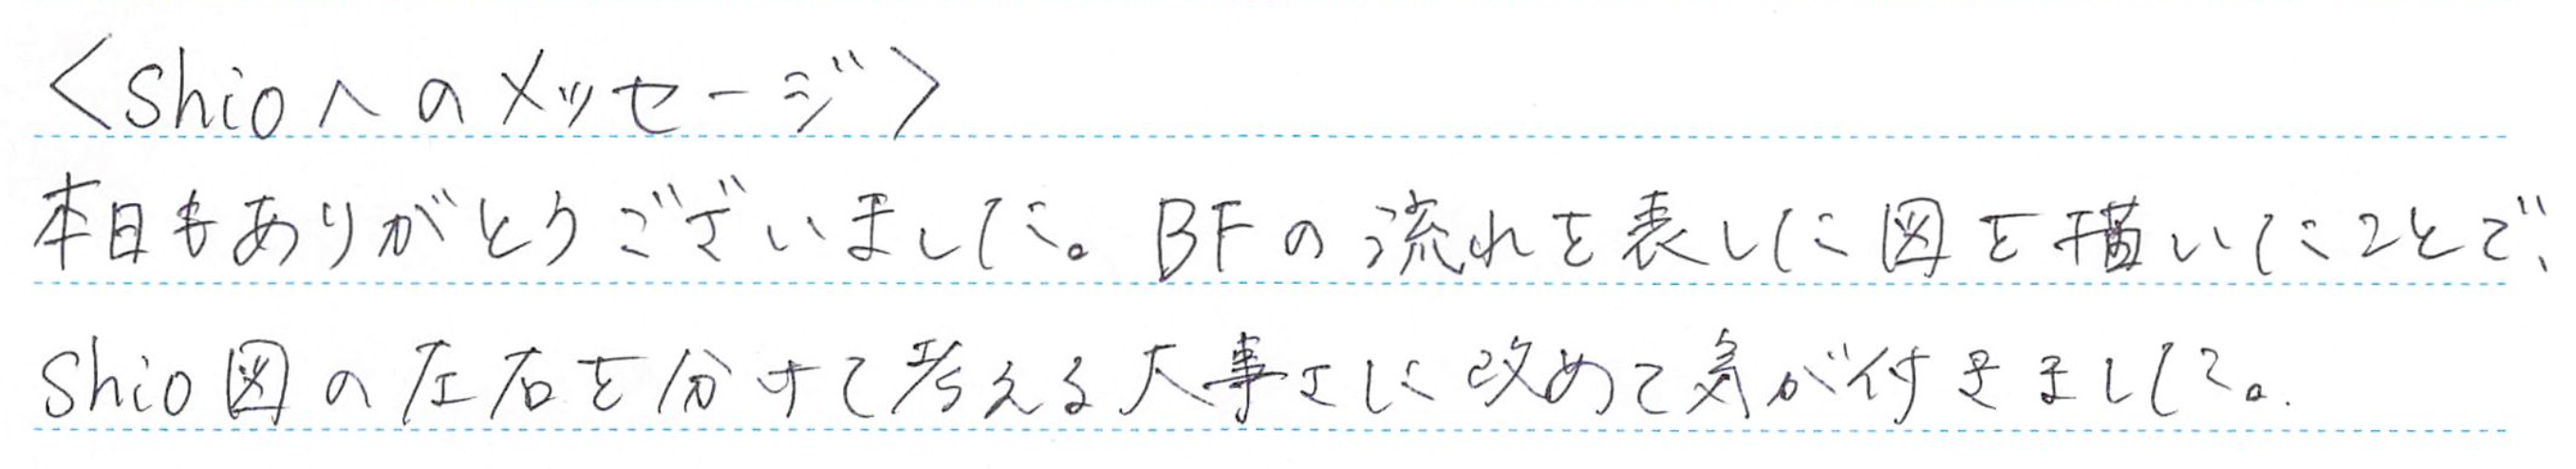 <Shioへのメッセージ>
本日もありがとうございました。BFの流れを表した図を描いたことで、
Shio図の左右を分けて考える大事さに改めて気が付きました。